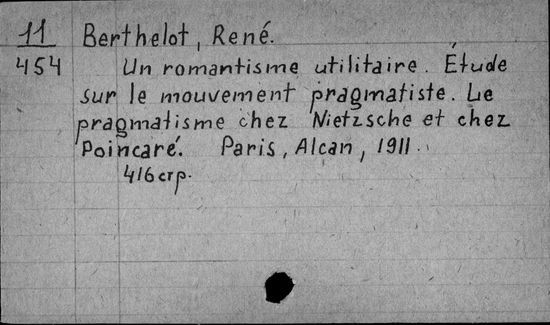 11 Berthelot, René.
454 Un romantisme utilitaire. Étude
sur le mouvement pragmatiste. Le
pragmatisme chez Nietzsche et chez
Poincaré. Paris, Alcan, 1911.
416 стр.